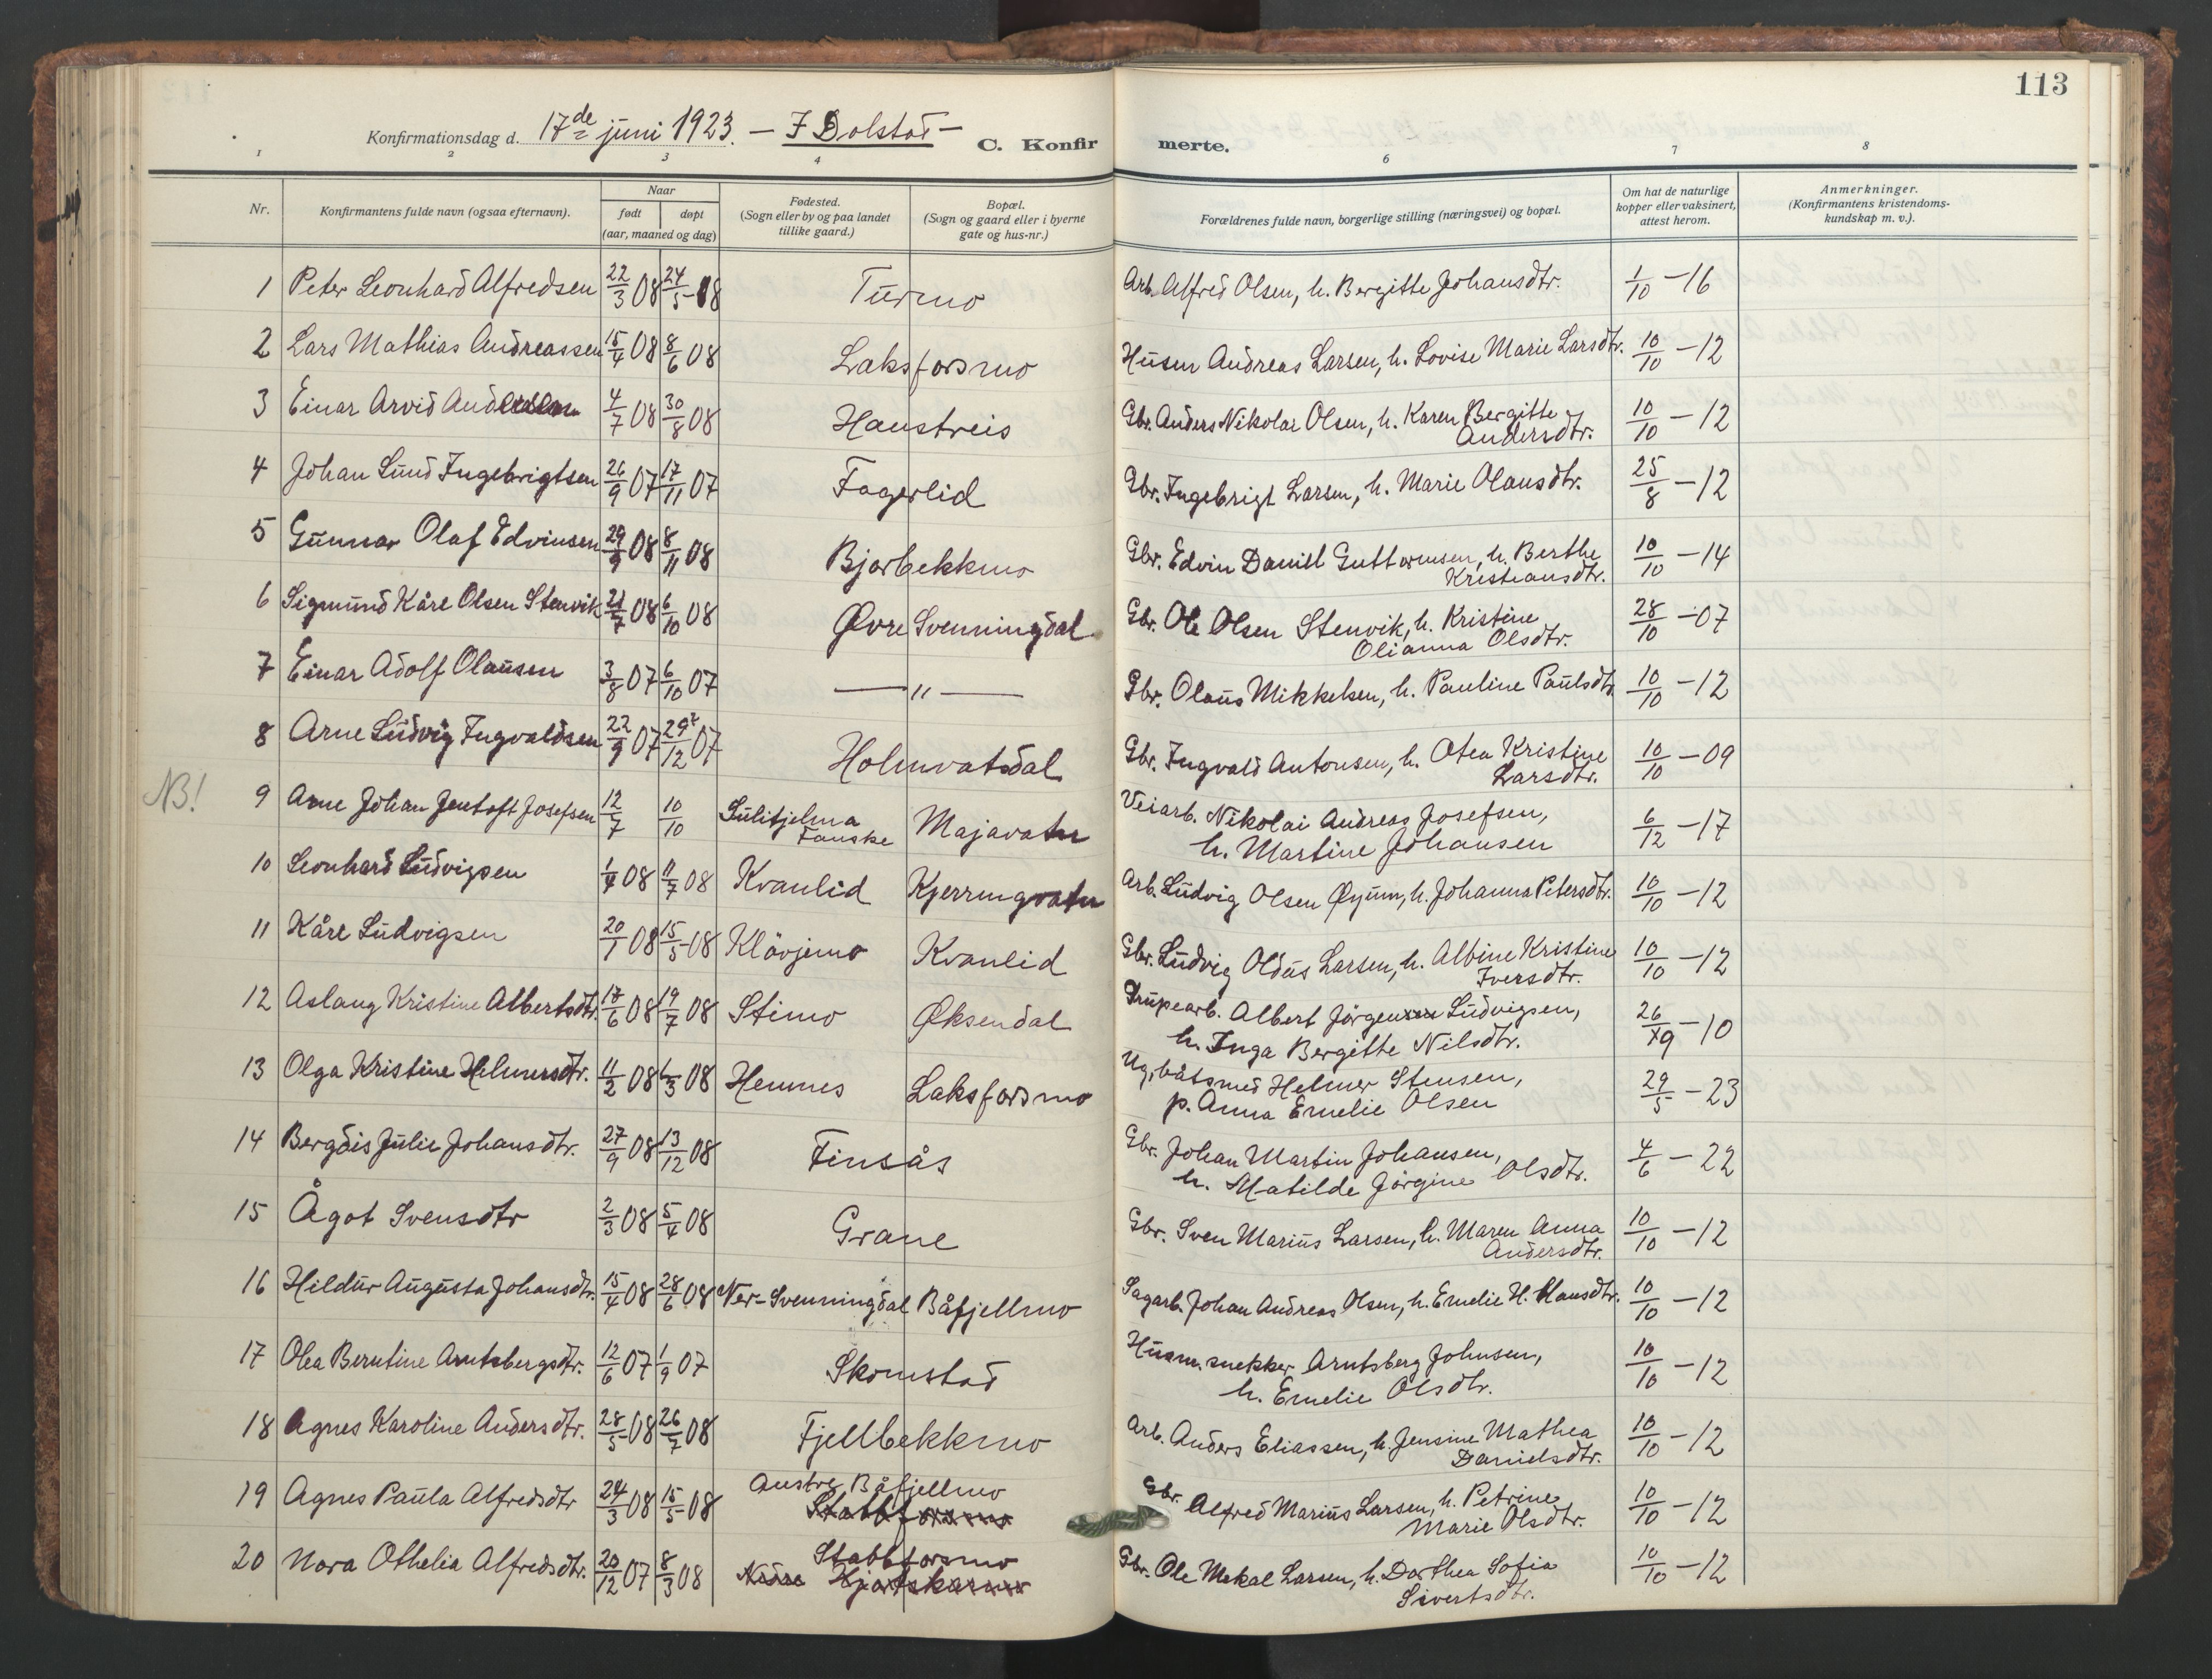 113
Konfirmationsdag d. 17de juni 1923. — I Dolstad —
C. Konfirmerte.
1 2 3 4 6 7 8
Nr.
Konfirmantens fulde navn (ogsaa efternavn).
Naar
født
døpt
(aar, maaned og dag)
Fødested.
(Sogn eller by og paa landet
tillike gaard.)
Bopæl.
(Sogn og gaard eller i byerne
gate og hus-nr.)
Forældrenes fulde navn, borgerlige stilling (næringsvei) og bopæl.
Om hat de naturlige
kopper eller vaksinert,
attest herom.
Anmerkninger.
(Konfirmantens kristendoms-
kundskap m. v.).
1 Peter Leonhard Alfredsen 22/3 08 24/5 - 08 Turmo Arb. Alfred Olsen, h. Bergitte Johansdtr. 1/10 - 16
2 Lars Mathias Andreassen 15/4 08 8/6 08 Laksforsmo Husm Andreas Larsen, h. Lovise Marie Larsdtr. 10/10 - 12
3 Einar Arvid 4/7 08 30/8 08 Haustreis Gbr. Anders Nikolai Olsen, h. Karen Bergitte
Andersdtr. 10/10 - 12
4 Johan Lund Ingebrigtsen 26/9 07 17/11 07 Fagerlid Gbr. Ingebrigt Larsen, h. Marie Olausdtr. 25/8 - 12
5 Gunnar Olaf Edvinsen 29/9 08 8/11 08 Bjørbekkmo Gbr. Edvin Daniel Guttormsen, h. Berthe
Kristiansdtr. 10/10 - 14
6 Sigmund Kåre Olsen Stenvik /7 08 6/10 08 Øvre Svenningdal Gbr. Ole Olsen Stenvik, h. Kristine
Olianna Olsdtr. 28/10 - 07
7 Einar Adolf Olausen 3/8 07 6/10 07 — " — Gbr. Olaus Mikkelsen, h. Pauline Paulsdtr. 10/10 - 12
8 Arne Ludvig Ingvaldsen 22/9 07 29/12 07 Holmvatsdal Gbr. Ingvald Antonsen, h. Otea Kristine
Larsdtr. 10/10 - 09
NB! 9 Arne Johan Jentoft Josefsen 12/7 10/10 Sulitjelma
Fauske Majavatn Veiarb. Nikolai Andreas Josefsen,
h. Martine Johansen 6/12 - 17
10 Leonhard Ludvigsen 1/4 08 11/7 08 Kvanlid Kjerringvatn Arb. Ludvig Olsen Øyum, h. Johanna Petersdtr. 10/10 - 12
11 Kåre Ludvigsen 20/1 08 15/5 - 08 Kløvjemo Kvanlid Gbr. Ludvig Oldus Larsen, h. Albine Kristine
Iversdtr. 10/10 - 12
12 Aslaug Kristine Albertsdtr. 17/6 08 19/7 08 Stimo Øksendal Grupearb. Albert Jørgen Ludvigsen,
h. Inga Bergitte Nilsdtr. 26/9 - 10
13 Olga Kristine Helmersdtr. 11/2 08 /3 08 Hemnes Laksforsmo Ug. båtsmed Helmer Stensen,
p. Anna Emelie Olsen 29/5 - 23
14 Bergdis Julie Johansdtr. 27/9 08 13/12 08 Finsås Gbr. Johan Martin Johansen,
h. Matilde Jørgine Olsdtr. 4/6 - 22
15 Ågot Svensdtr 2/3 08 5/4 08 Grane Gbr. Sven Marius Larsen, h. Maren Anna
Andersdtr. 10/10 - 12
16 Hildur Augusta Johansdtr. 15/4 08 28/6 08 Ner-Svenningdal Båfjellmo Sagarb. Johan Andreas Olsen, h. Emelie H. Hansdtr. 10/10 - 12
17 Olea Berntine Arntsbergsdtr. 12/6 07 1/9 07 Skomstad Husm. snekker Arntsberg Johnsen,
h. Emelie Olsdtr. 10/10 - 12
18 Agnes Karoline Andersdtr. 28/5 08 26/7 08 Fjellbekkmo Arb. Anders Eliassen, h. Jensine Mathea
Danielsdtr. 10/10 - 12
19 Agnes Paula Alfredsdtr 24/3 08 15/5 08 Austre Båfjellmo
Stabbforsmo Gbr. Alfred Marius Larsen, h. Petrine
Marie Olsdtr. 10/10 - 12
20 Nora Othelia Alfredsdtr. 20/12 07 8/3 08 Stabbforsmo
Gbr. Ole Mekal Larsen, h. Dorthea Sofia
Sivertsdtr. 10/10 - 12